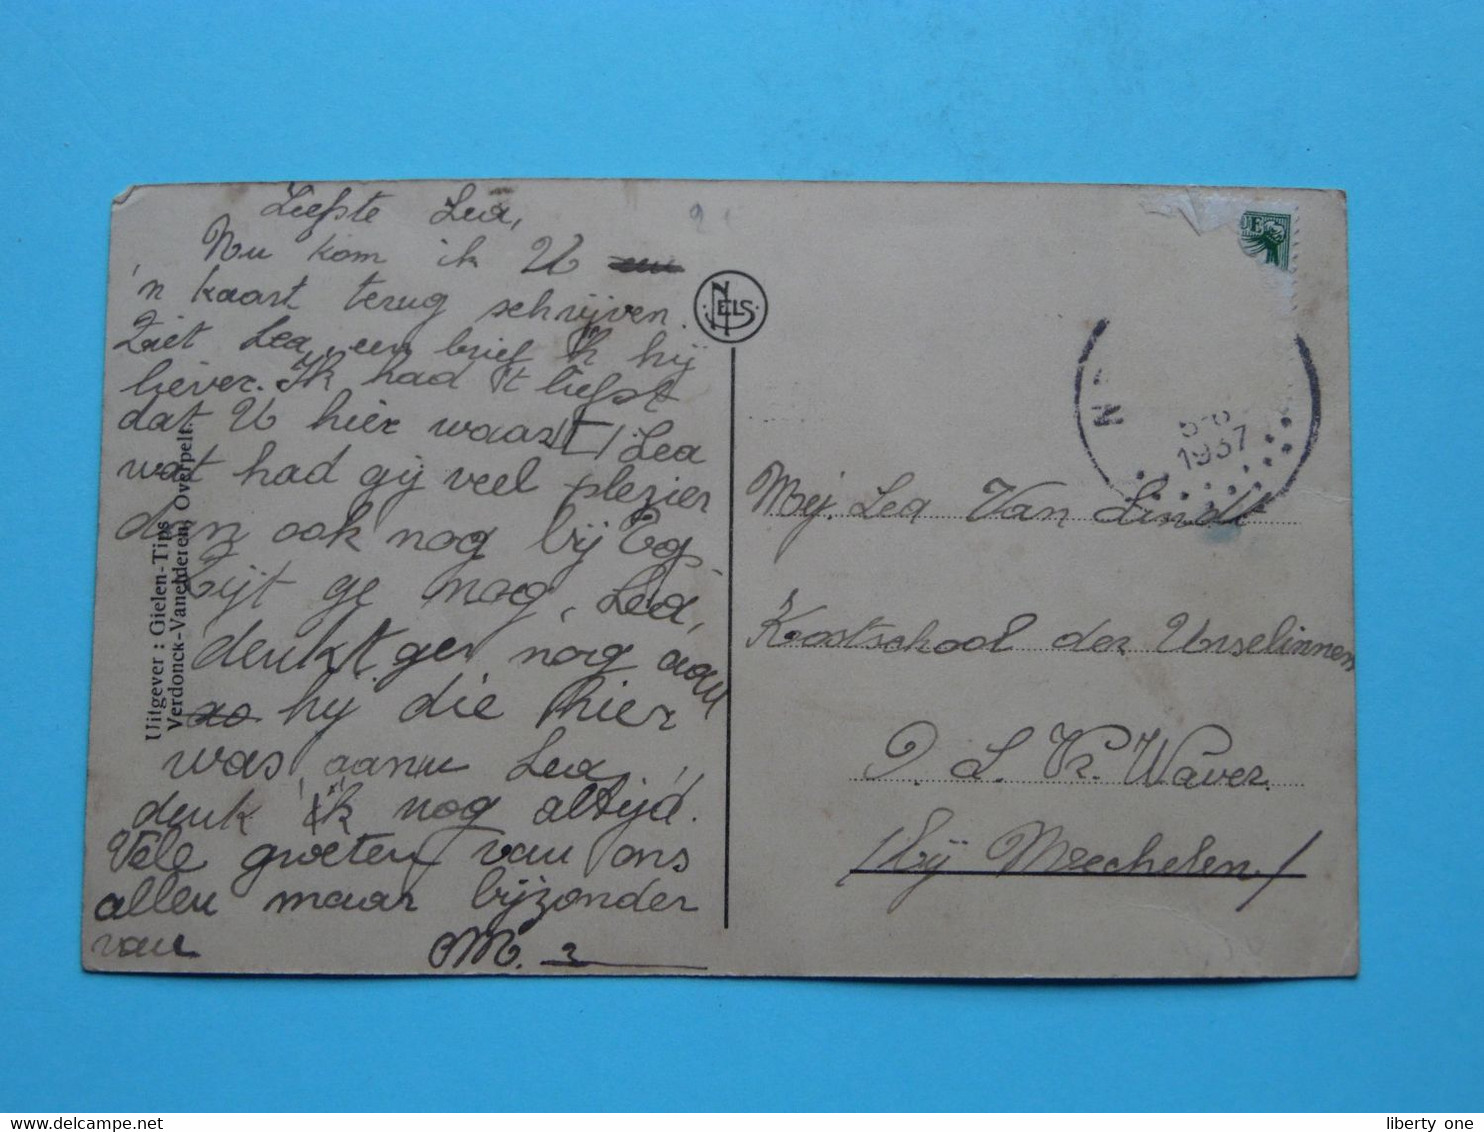 Liefste Lea,
Nu kom ik U
'n kaart terug schrijven.
Ziet Lea, een brief is hij
liever. Ik had 't liefst
dat U hier waart Lea
wat had gij veel plezier
dan ook nog bij
Zijt ge nog, Lea,
denkt ger nog aan
hij die hier
was, aanu Lea,
denk ik nog altijd.
Vele groeten van ons
allen maar bijzonder
van M.
Uitgever : Gielen-Tips
Verdonck-Vanelderen, Overpelt.
NELS
1937
Mej. Lea Van Lindt
Kostschool der Urselinnen
O. L. Vr. Waver
/bij Mechelen/
liberty one